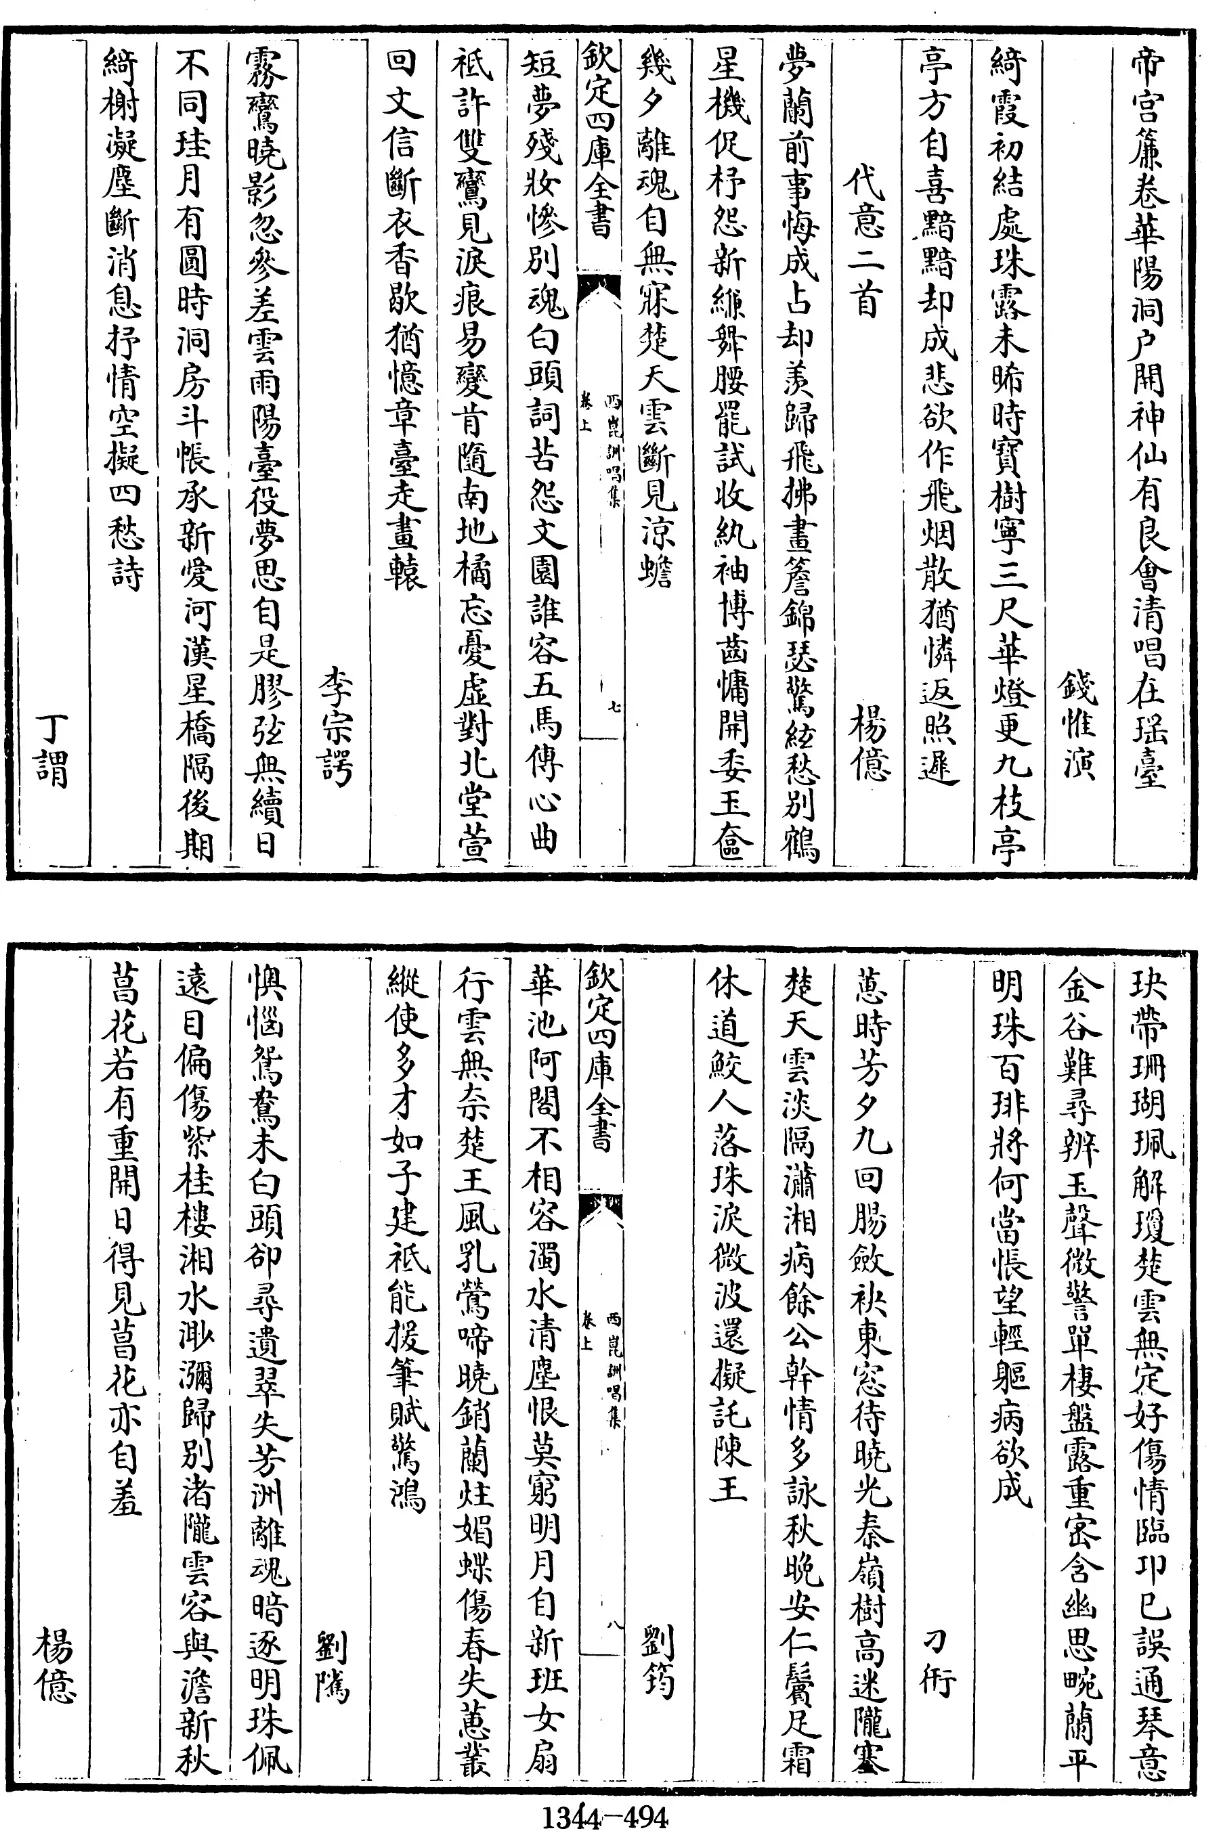 帝宫簾卷華陽洞户開神仙有良會清唱在瑶臺
錢惟演
綺霞初結處珠露未晞時寳樹寧三尺華燈更九枝亭
亭方自喜黯黯却成悲欲作飛烟散猶憐返照遲
代意二首 楊億
夢蘭前事悔成占却羨歸飛拂畫簷錦瑟驚絃愁别鶴
星機促杼怨新縑舞腰罷試收紈袖博齒慵開委玉奩
幾夕離魂自無寐楚天雲斷見凉蟾
欽定四庫全書
西崑詶唱集
卷上
七
短夢殘妝慘别魂白頭詞苦怨文園誰容五馬傳心曲
祗許雙鸞見淚痕易變肯隨南地橘忘憂虚對北堂萱
回文信斷衣香歇猶憶章臺走畫轅
李宗諤
霧鸞曉影忽參差雲雨陽臺役夢思自是膠弦無續日
不同珪月有圓時洞房斗帳承新愛河漢星橋隔後期
綺榭凝塵斷消息抒情空擬四愁詩
丁謂
玦帶珊瑚珮解瓊楚雲無定好傷情臨邛已誤通琴意
金谷難尋辨玉聲微警單棲盤露重密含幽思畹蘭平
明珠百琲將何當悵望輕軀病欲成
刁衎
蕙時芳夕九回腸斂袂東窓待曉光秦嶺樹高迷隴塞
楚天雲淡隔瀟湘病餘公幹情多詠秋晚安仁鬢足霜
休道鮫人落珠淚微波還擬託陳王
劉筠
欽定四庫全書
西崑詶唱集
卷上
八
華池阿閣不相容濁水清塵恨莫窮明月自新班女扇
行雲無奈楚王風乳鶯啼曉銷蘭炷媚蝶傷春失蕙叢
縱使多才如子建祗能援筆賦驚鴻
劉隲
懊惱鴛鴦未白頭卻尋遺翠失芳洲離魂暗逐明珠佩
遠目偏傷紫桂樓湘水渺瀰歸别渚隴雲容與澹新秋
菖花若有重開日得見菖花亦自羞
楊億
1344-494